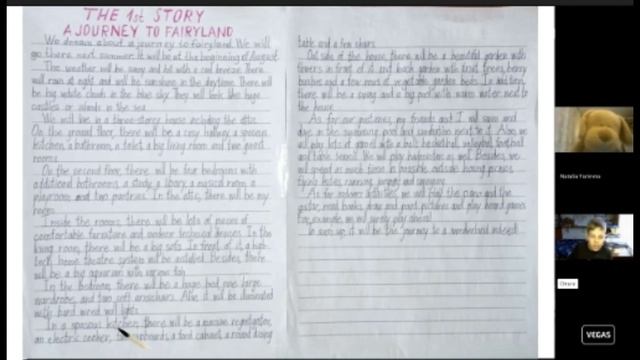 THE 1st STORY
A JOURNEY TO FAIRYLAND
We dream about a journey to fairyland. We will
go there next summer. It will be at the beginning of August.
The weather will be sunny and hot with a cool breeze. There
will rain at night and will be sunshine in the daytime. There
will be big white clouds in the blue sky. They will look like huge
castles or islands in the sea.
We will live in a three-storey house including the attic.
On the ground floor, there will be a cosy hallway, a spacious
kitchen, a bathroom, a toilet, a big living room and two guest
rooms.
On the second floor, there will be four bedrooms with
additional bathrooms, a study, a library, a musical room, a
playroom and two pantries. In the attic, there will be my
room.
Inside the rooms, there will be lots of pieces of
comfortable furniture and modern technical devices. In the
living room, there will be a big sofa. In front of it, a high-
tech home theatre system will be installed. Besides, there
will be a big aquarium with various fish.
In the bedroom, there will be a huge bed, one large
wardrobe, and two soft armchairs. Also, it will be illuminated
with hard wired wall lights.
In a spacious kitchen, there will be a massive refrigerator,
an electric cooker, cupboards, a food cabinet, a round dining
table and a few chairs.
Out side of the house, there will be a beautiful garden with
flowers in front of it and back garden with fruit trees, berry
bushes and a few rows of vegetable garden beds. In a
there will be a swing and a big pool with warm water next to
the house.
As for our pastimes, my friends and I will swim and
dive in the swimming pool and sunbathe next to it. Also, we
will play lots of games with a ball: basketball, volleyball, football
and table tennis. We will play badminton as well. Besides, we
will spend as much time as possible outside having picnics,
riding bikes, running, jumping and
As for indoor activities, we will play the piano and the
guitar, read books, draw and paint pictures and play board games.
For example, we will surely play
To sum up, it will be the journey to a wonderland indeed!
Natalia Yaremma
Ольга
VEGAS